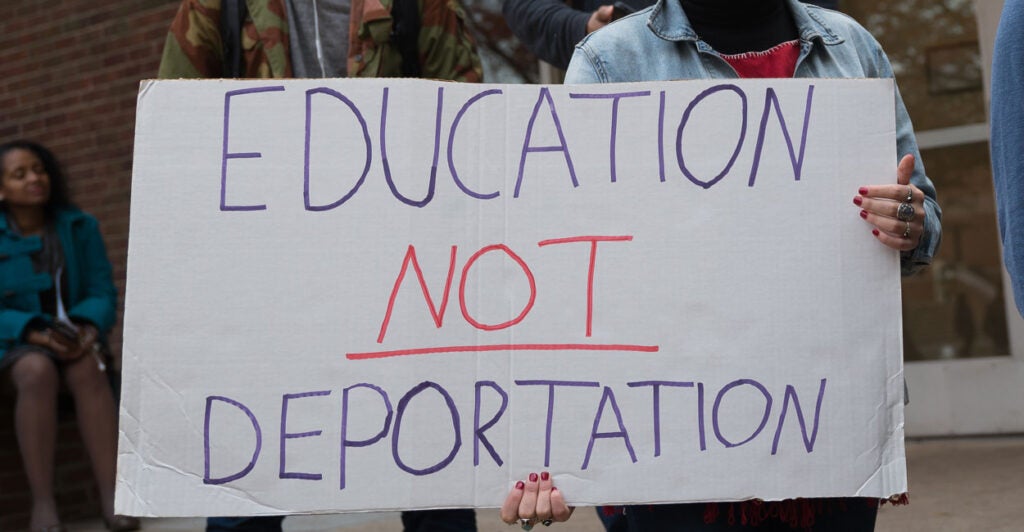 EDUCATION
NOT
DEPORTATION